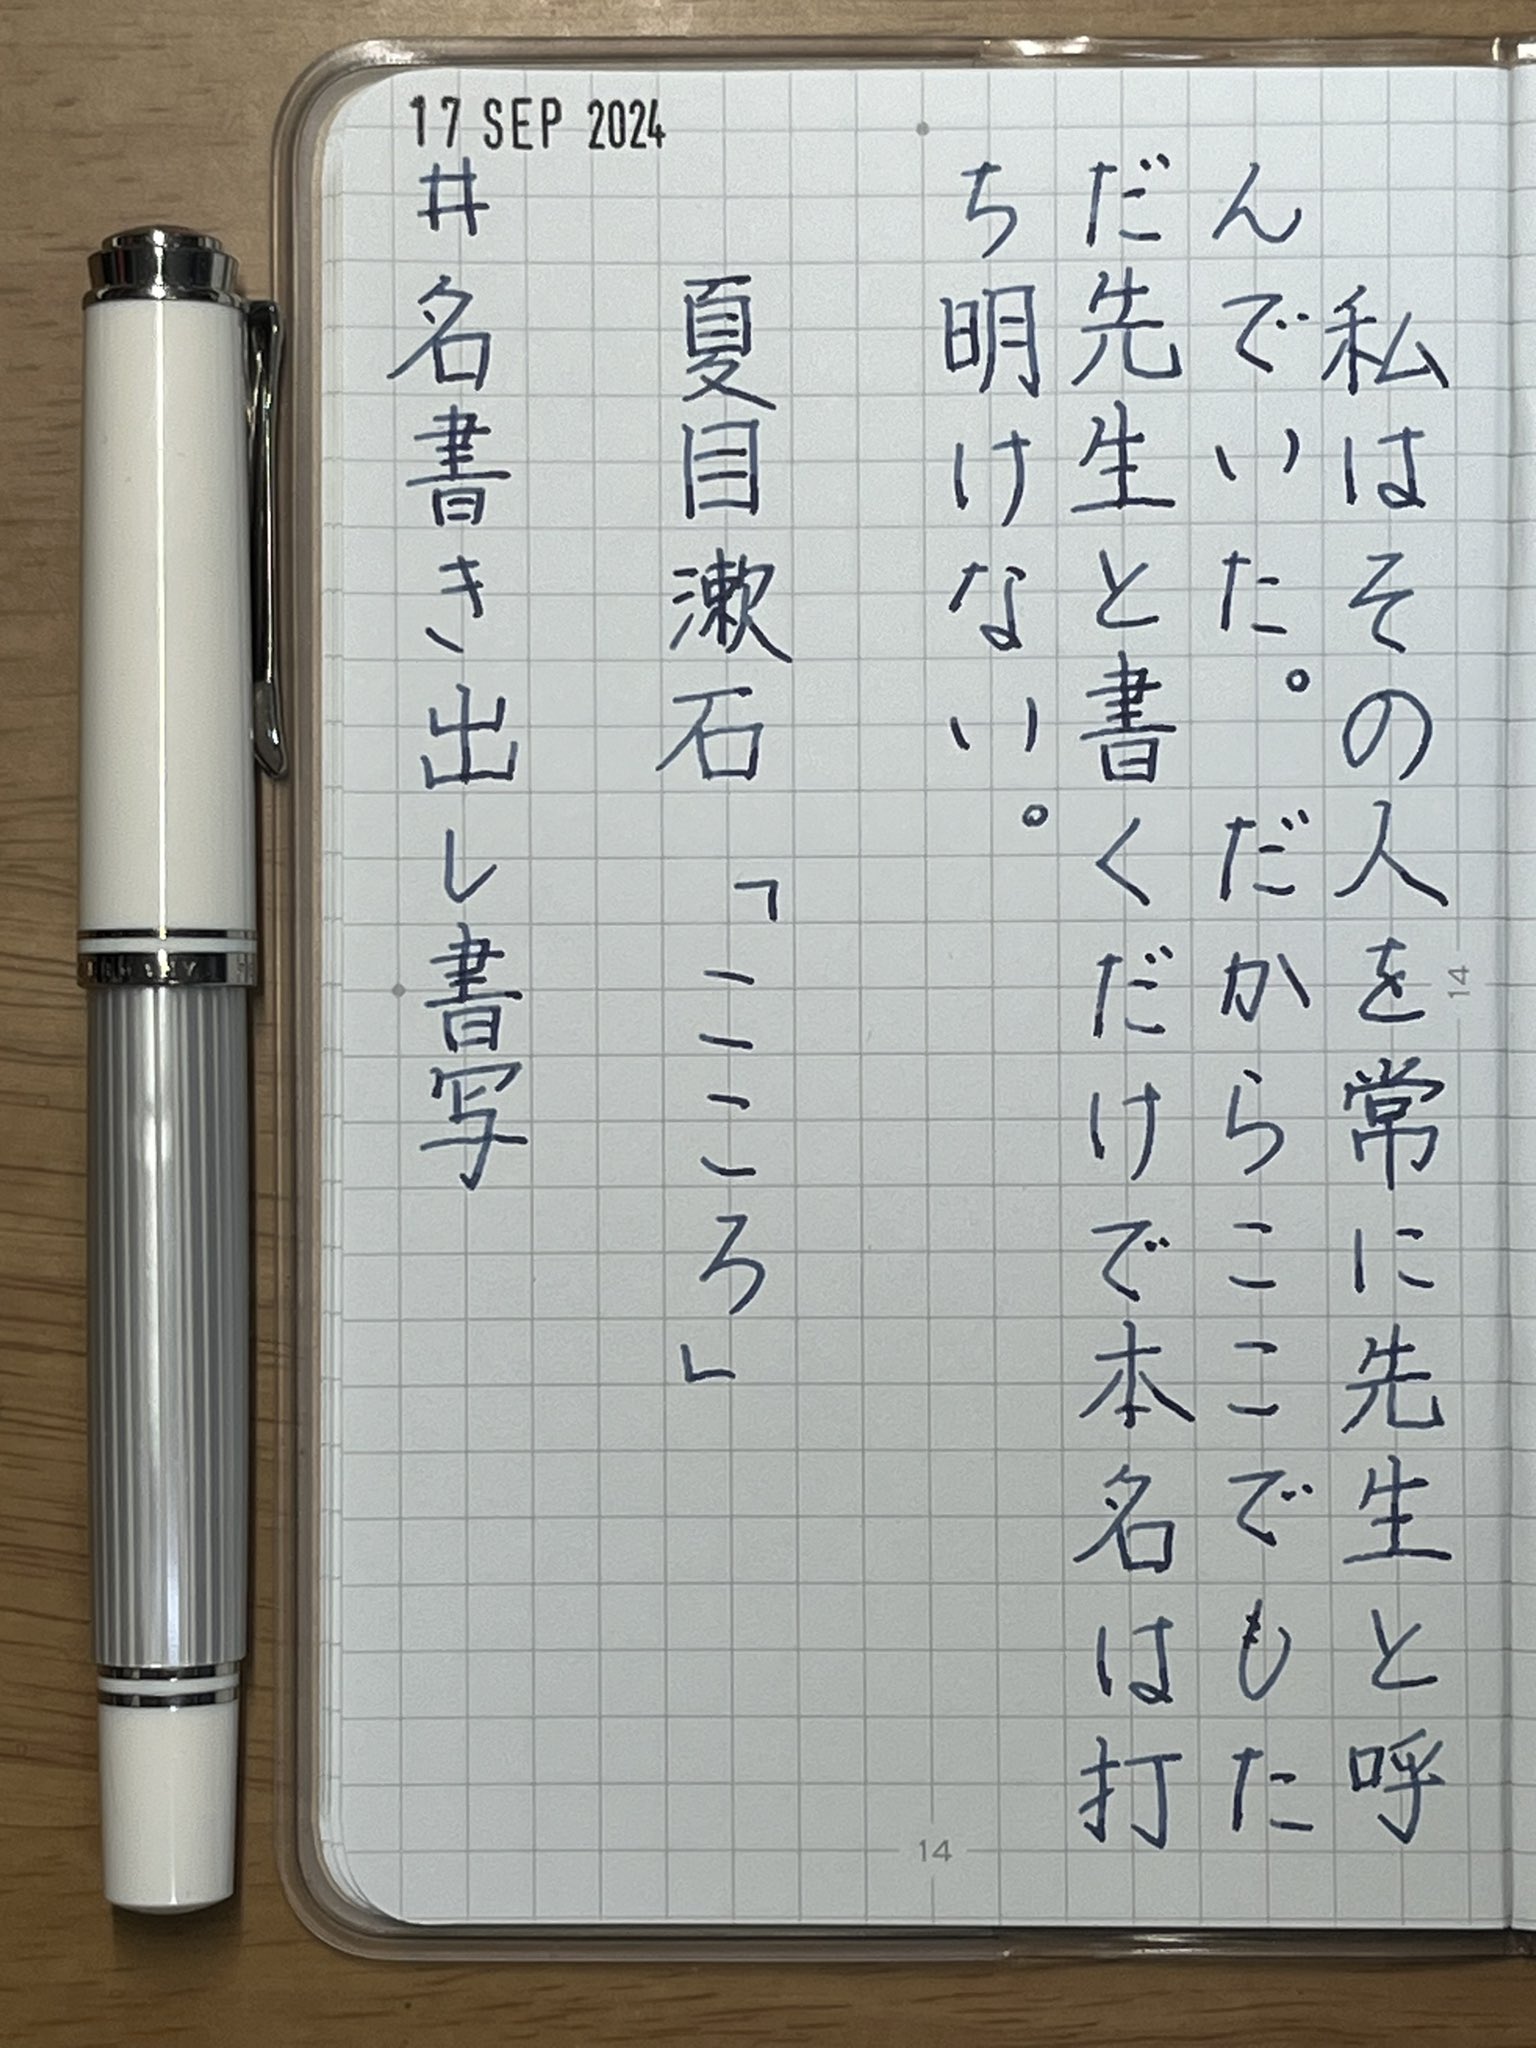 17 SEP 2024
私はその人を常に先生と呼
んでいた。だからここでもた
だ先生と書くだけで本名は打
ち明けない。
夏目漱石「こころ」
#名書き出し書写
14
14